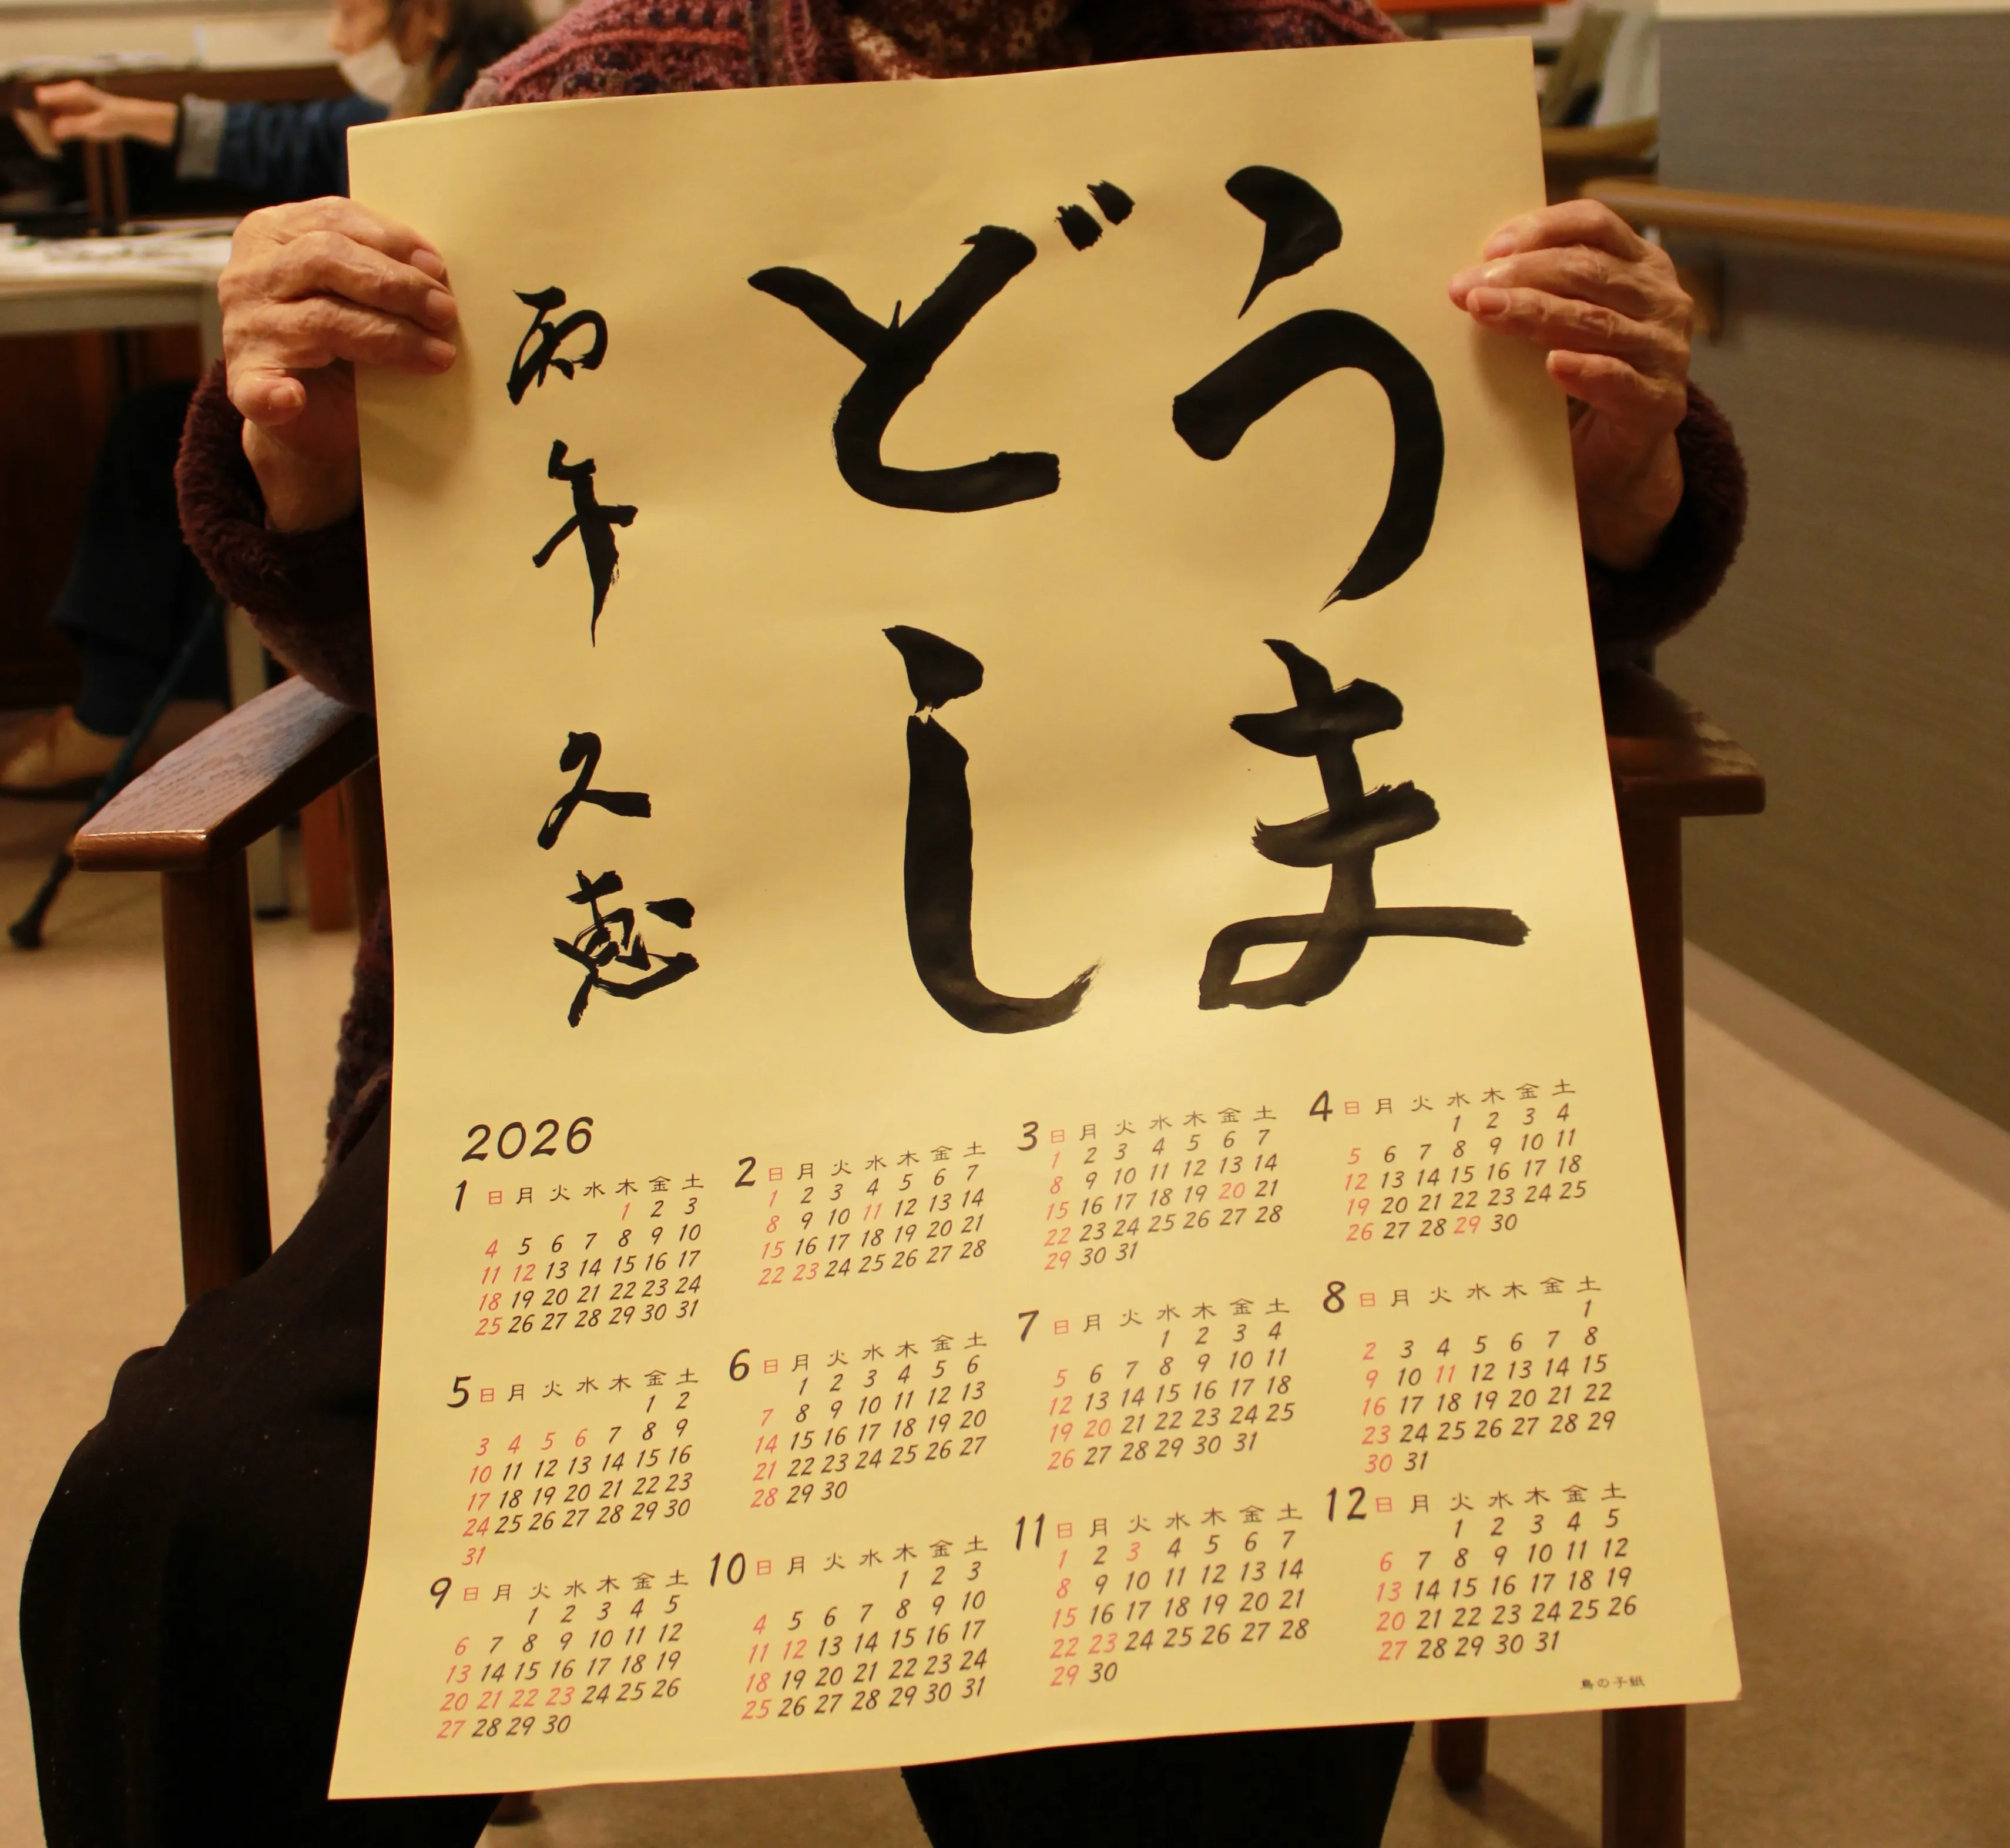 うま
どし
丙午 久恵
2026
1 日 月 火 水 木 金 土
1 2 3
4 5 6 7 8 9 10
11 12 13 14 15 16 17
18 19 20 21 22 23 24
25 26 27 28 29 30 31
2 日 月 火 水 木 金 土
1 2 3 4 5 6 7
8 9 10 11 12 13 14
15 16 17 18 19 20 21
22 23 24 25 26 27 28
3 日 月 火 水 木 金 土
1 2 3 4 5 6 7
8 9 10 11 12 13 14
15 16 17 18 19 20 21
22 23 24 25 26 27 28
29 30 31
4 日 月 火 水 木 金 土
1 2 3 4
5 6 7 8 9 10 11
12 13 14 15 16 17 18
19 20 21 22 23 24 25
26 27 28 29 30
5 日 月 火 水 木 金 土
1 2
3 4 5 6 7 8 9
10 11 12 13 14 15 16
17 18 19 20 21 22 23
24 25 26 27 28 29 30
31
6 日 月 火 水 木 金 土
1 2 3 4 5 6
7 8 9 10 11 12 13
14 15 16 17 18 19 20
21 22 23 24 25 26 27
28 29 30
7 日 月 火 水 木 金 土
1 2 3 4
5 6 7 8 9 10 11
12 13 14 15 16 17 18
19 20 21 22 23 24 25
26 27 28 29 30 31
8 日 月 火 水 木 金 土
1
2 3 4 5 6 7 8
9 10 11 12 13 14 15
16 17 18 19 20 21 22
23 24 25 26 27 28 29
30 31
9 日 月 火 水 木 金 土
1 2 3 4 5
6 7 8 9 10 11 12
13 14 15 16 17 18 19
20 21 22 23 24 25 26
27 28 29 30
10 日 月 火 水 木 金 土
1 2 3
4 5 6 7 8 9 10
11 12 13 14 15 16 17
18 19 20 21 22 23 24
25 26 27 28 29 30 31
11 日 月 火 水 木 金 土
1 2 3 4 5 6 7
8 9 10 11 12 13 14
15 16 17 18 19 20 21
22 23 24 25 26 27 28
29 30
12 日 月 火 水 木 金 土
1 2 3 4 5
6 7 8 9 10 11 12
13 14 15 16 17 18 19
20 21 22 23 24 25 26
27 28 29 30 31
鳥の子紙